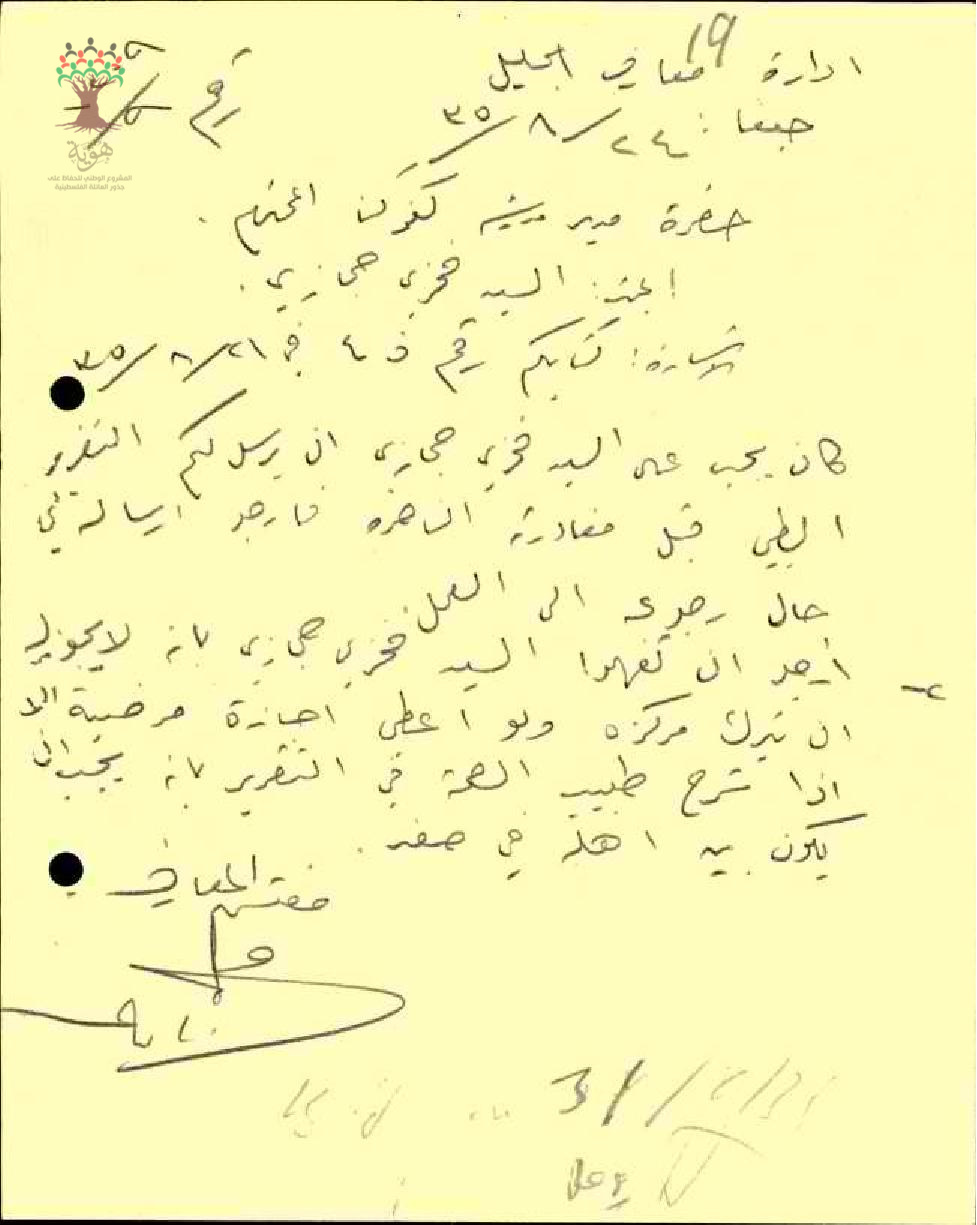 19
ادارة معارف الجليل
حيفا: ٢٤/٨/٣٥
رقم
هوية
المشروع الوطني للحفاظ على
جذور العائلة الفلسطينية
حضرة مدير مدرسة كفركنا المحترم.
المبحث: السيد فخري حجازي.
الاشارة: كتابكم رقم ف ٤ في ٢١/٨/٣٥
كان يجب على السيد فخري حجازي ان يرسل لكم التقرير
الطبي قبل مغادرته الناصره فارجو ارساله لي
حال رجوعه الى العمل.
٢- أرجو ان تفهموا السيد فخري حجازي بانه لا يجوز له
ان يترك مركزه ولو اعطي اجازة مرضية الا
اذا شرح طبيب الصحة في التقرير بانه يجب ان
يكون بين اهله في صفد.
مفتش المعارف
31/